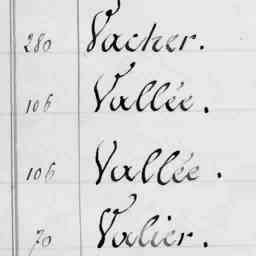 280 Vacher.
106 Vallée.
106 Vallée.
70 Valier.